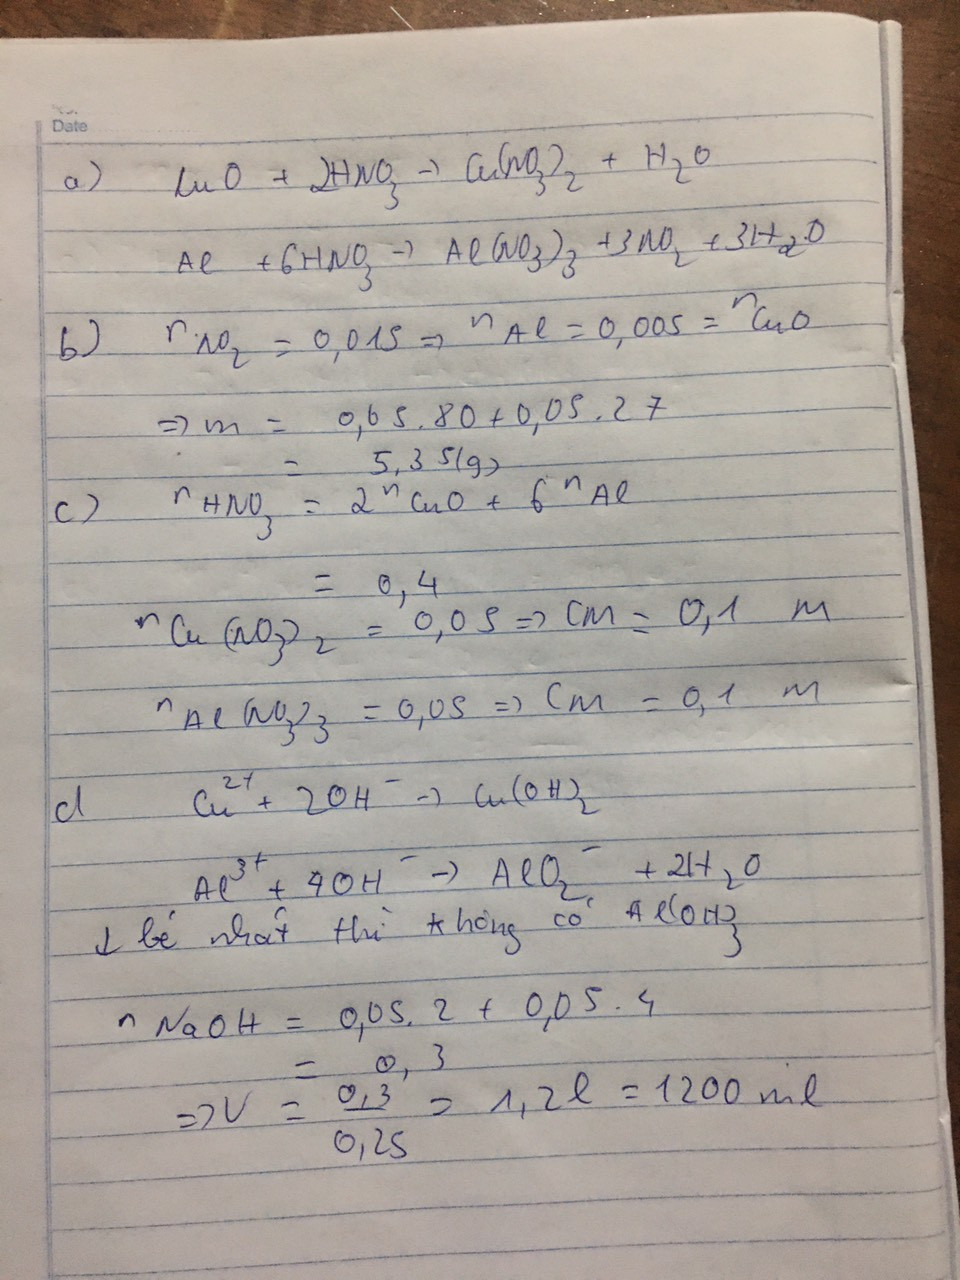 Date
a) CuO + 2HNO3 → Cu(NO3)2 + H2O
Al + 6HNO3 → Al(NO3)3 + 3NO2 + 3H2O
b) nNO2 = 0,015 => nAl = 0,005 = nCuO
=> m = 0,05.80 + 0,05.27
= 5,35(g)
c) nHNO3 = 2nCuO + 6nAl
= 0,4
nCu(NO3)2 = 0,05 => CM = 0,1 M
nAl(NO3)3 = 0,05 => CM = 0,1 M
d Cu2+ + 2OH- → Cu(OH)2
Al3+ + 4OH- → AlO2- + 2H2O
↓ bé nhất thì không có Al(OH)3
nNaOH = 0,05.2 + 0,05.4
= 0,3
=> V = 0,3/0,25 = 1,2l = 1200ml